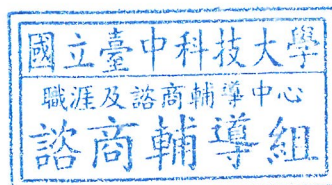 國立臺中科技大學
職涯及諮商輔導中心
諮商輔導組